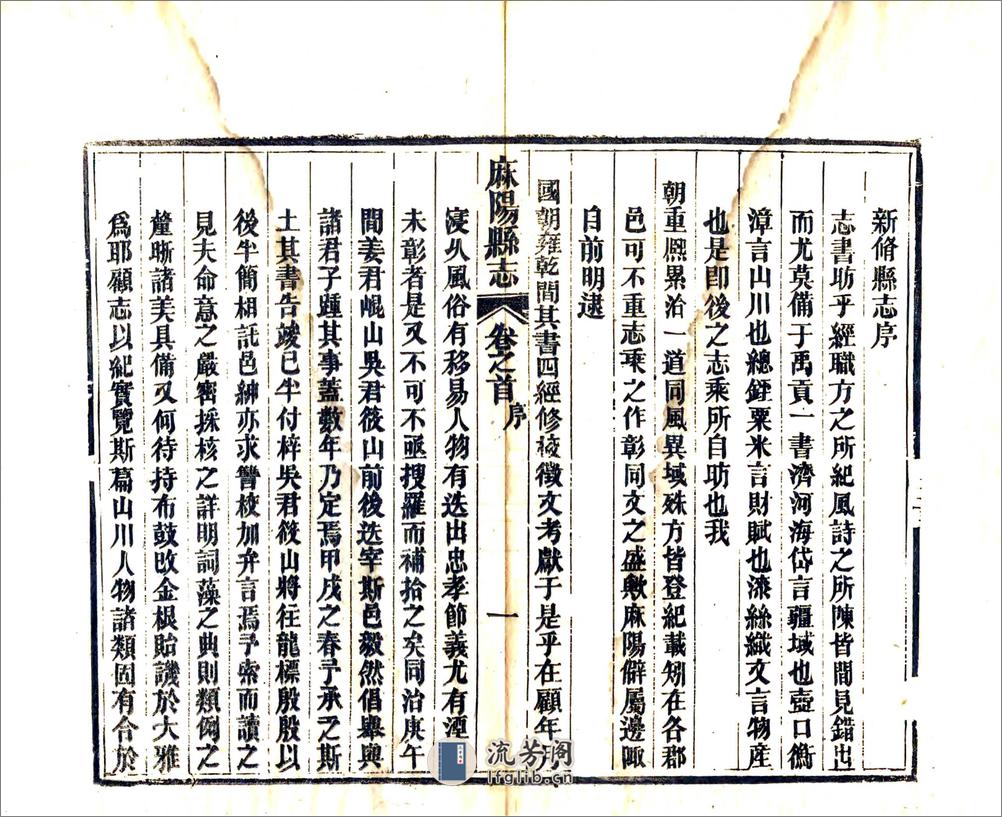 新脩縣志序
志書昉乎經職方之所紀風詩之所陳皆閒見錯出
而尤莫備于禹貢一書濟河海岱言疆域也壺口衡
漳言山川也總銍粟米言財賦也漆絲織文言物產
也是卽後之志乘所自昉也我
朝重熈累洽一道同風異域殊方皆登紀載矧在各郡
邑可不重志乘之作彰同文之盛歟麻陽僻屬邊陬
自前明逮
國朝雍乾間其書四經修校徵文考獻于是乎在顧年
寖久風俗有移易人物有迭出忠孝節義尤有湮
未彰者是又不可不亟搜羅而補拾之矣同治庚午
間姜君崐山吳君筱山前後迭宰斯邑毅然倡舉與
諸君子踵其事葢數年乃定焉甲戌之春予承乏斯
土其書告竣已半付梓吳君筱山將往龍標殷殷以
後半簡相託邑紳亦求讐校加弁言焉予索而讀之
見夫命意之嚴密採核之詳明詞藻之典則類例之
釐晰諸美具備又何待持布鼓改金根貽譏於大雅
爲耶顧志以紀實覽斯篇山川人物諸類固有合於
麻陽縣志 卷之首 序 一
流芳阁
lfglib.cn